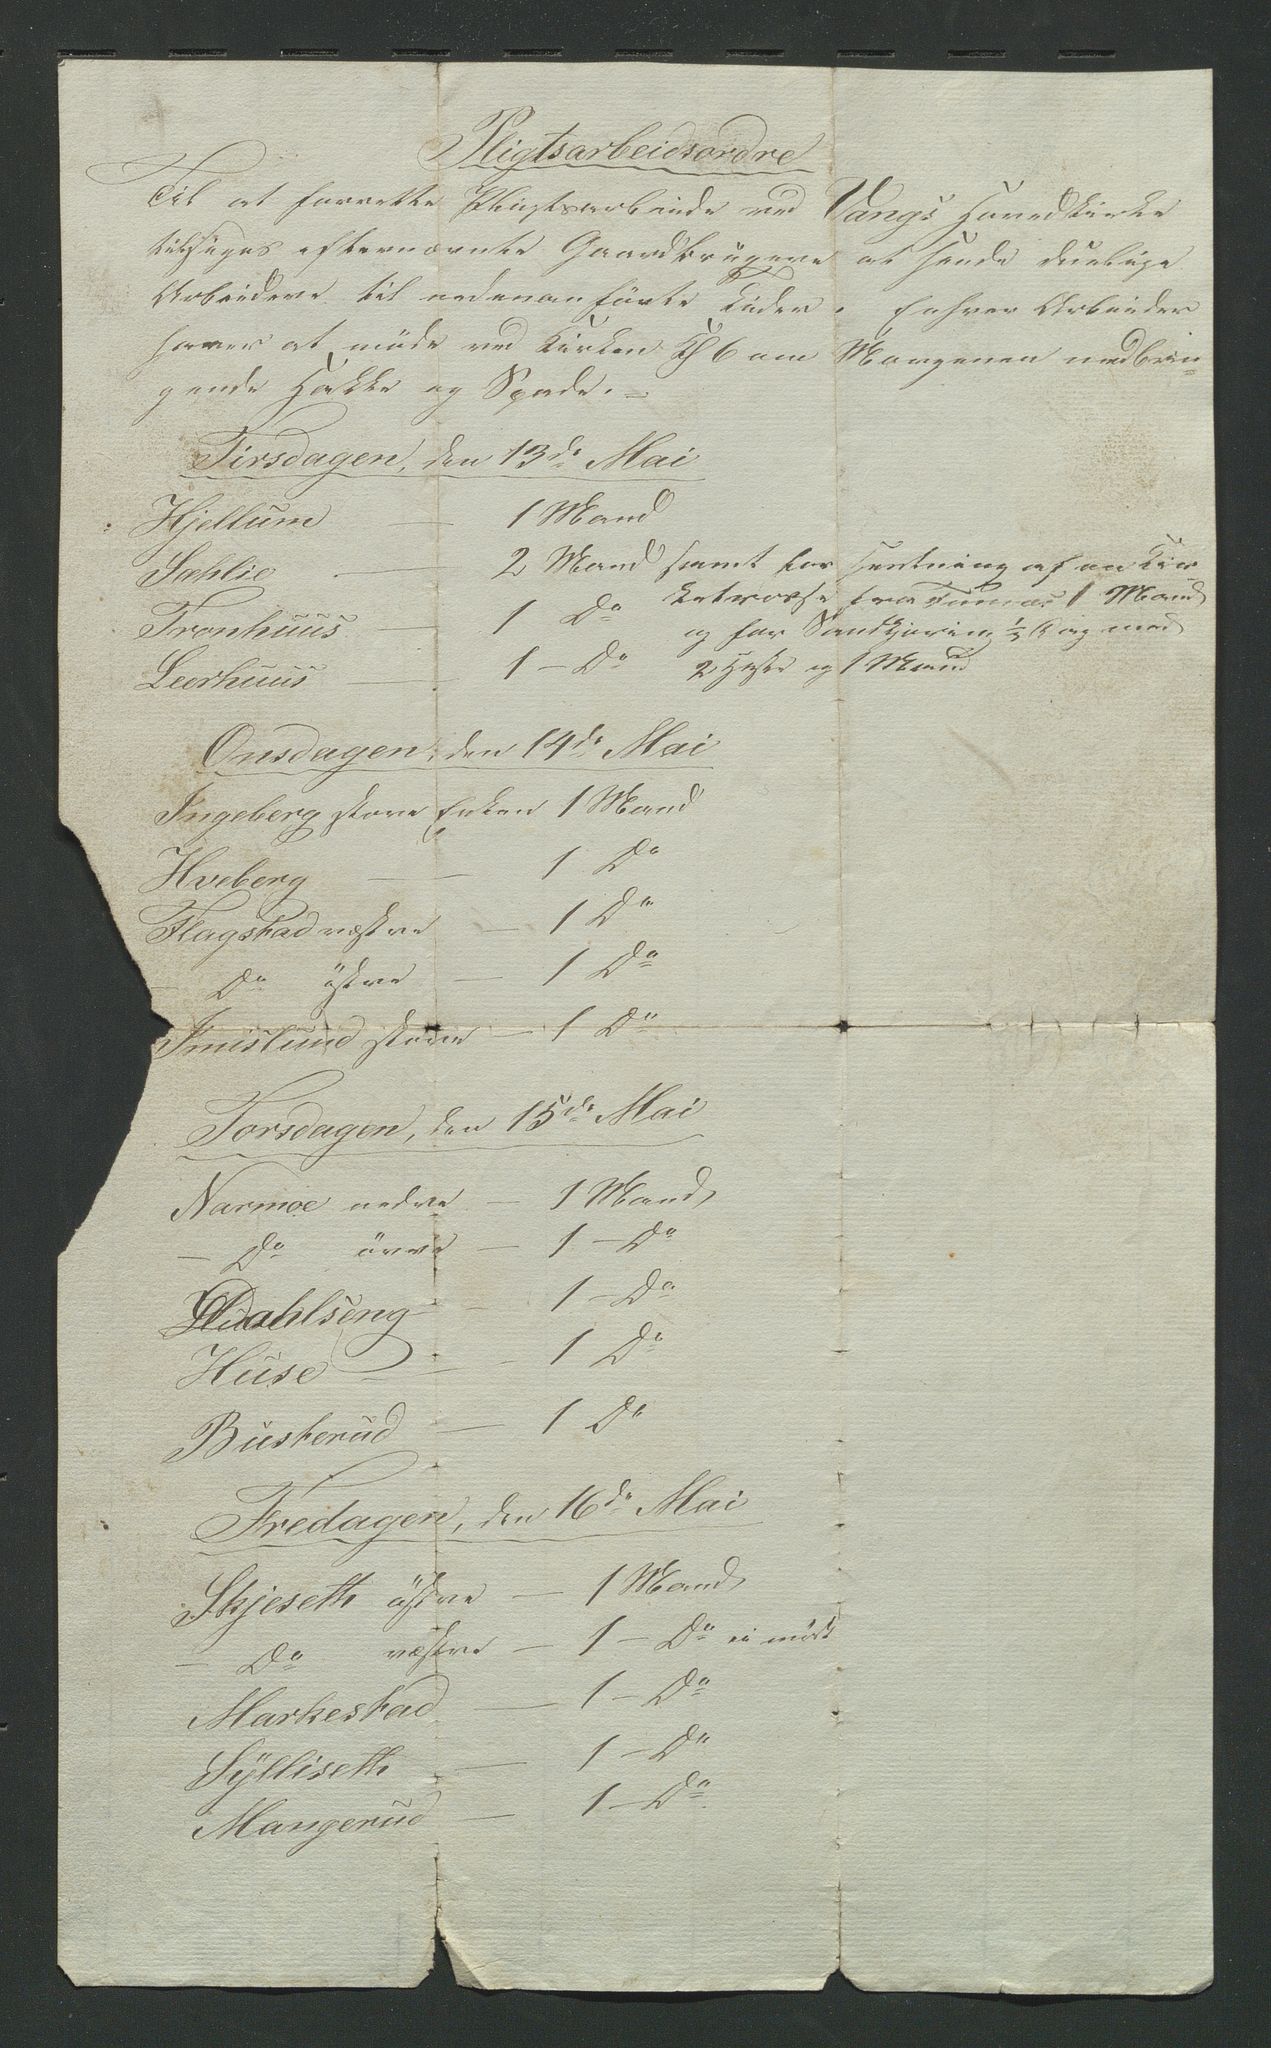 Pligtsarbeidsordre
Til at forrette Pligtsarbeide ved Vangs Hovedkirke
tilsiges efternævnte Gaardbrugere at sende duelige
Arbeidere til nedenanførte Tider. Enhver Arbeider
haver at møde ved Kirken Kl 6 om Morgenen medbrin-
gende Hakke og Spade. –
Tirsdagen, den 13de Mai
Hjellum — 1 Mand
Sahlie — 2 Mand samt for Hentning af en Kir
Tronhuus — 1 Do
ketrosse fra 1 Mand
og for Sandkjøring ½ Dag med
Leerhuus — 1 – Do
2 Heste og 1 Mand
Onsdagen, den 14de Mai
Ingeberg store Enken 1 Mand
Hveberg — — 1 Do
Flagstad vestre — 1 Do
— Do østre — 1 Do
Imislund store — 1 Do
Torsdagen, den 15de Mai
Narmoe nedre — 1 Mand
— Do øvre — 1 – Do
Dahlseng — 1 – Do
Huse — — 1 Do
Busterud — 1 Do
Fredagen, den 16de Mai
Skjeseth østre — 1 Mand
— Do vestre — 1 – Do ei mødt
Markestad — 1 – Do
Sylliseth — 1 – Do
Mangerud — 1 – Do